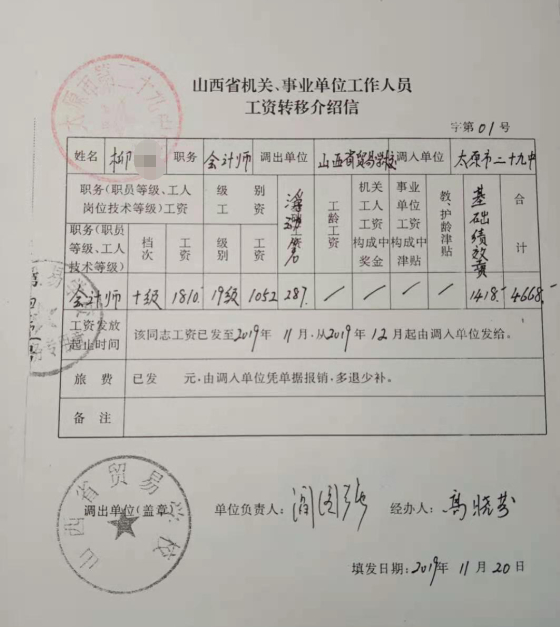 山西省机关、事业单位工作人员
工资转移介绍信
字第01号
姓名 柳 职务 会计师 调出单位 山西省贸易学校 调入单位 太原市二十九中
职务(职员等级、工人岗位技术等级)工资 级别工资 工龄工资 机关工人工资构成中奖金 事业单位工资构成中津贴 教、护龄津贴 基础绩效奖 合计
职务(职员等级、工人技术等级) 档次 工资 级别 工资
会计师 十级 1810. 19级 1052 287. / / / / 1418.- 4668.-
工资发放起止时间 该同志工资已发至2019年11月,从2019年12月起由调入单位发给。
旅费 已发 元,由调入单位凭单据报销,多退少补。
备注
山西省贸易学校
调出单位(盖章) 单位负责人: 经办人:高晓芳
填发日期:2019年11月20日